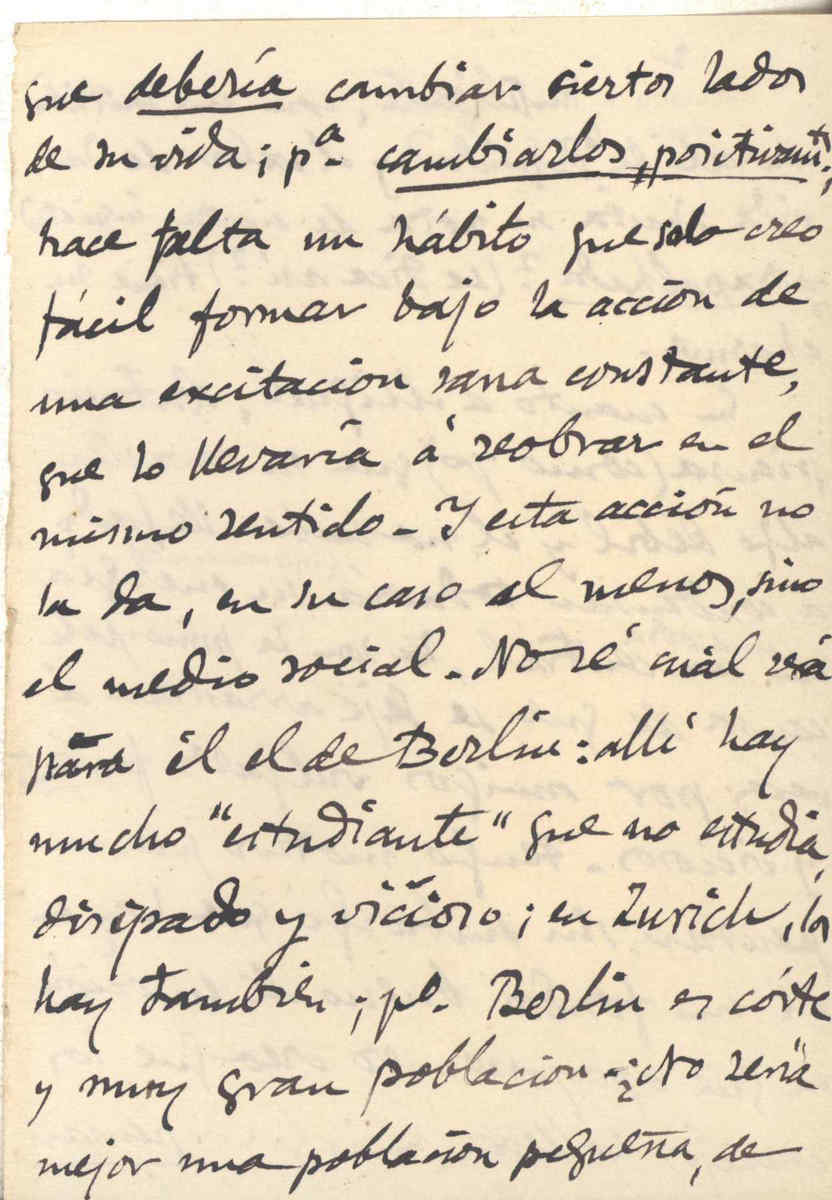 que debería cambiar ciertos lados
de su vida; pª. cambiarlos, positivamte.,
hace falta un hábito que solo creo
fácil formar bajo la acción de
una excitacion sana constante,
que lo llevaría á reobrar en el
mismo sentido - Y esta acción no
la da, en su caso al menos, sino
el medio social. - No sé cuál será
para él el de Berlin: allí hay
mucho "estudiante" que no estudia,
disipado y vicioso; en Zurich, los
hay tambien; po. Berlin es córte
y muy gran poblacion - ¿No sería
mejor una poblacion pequeña, de